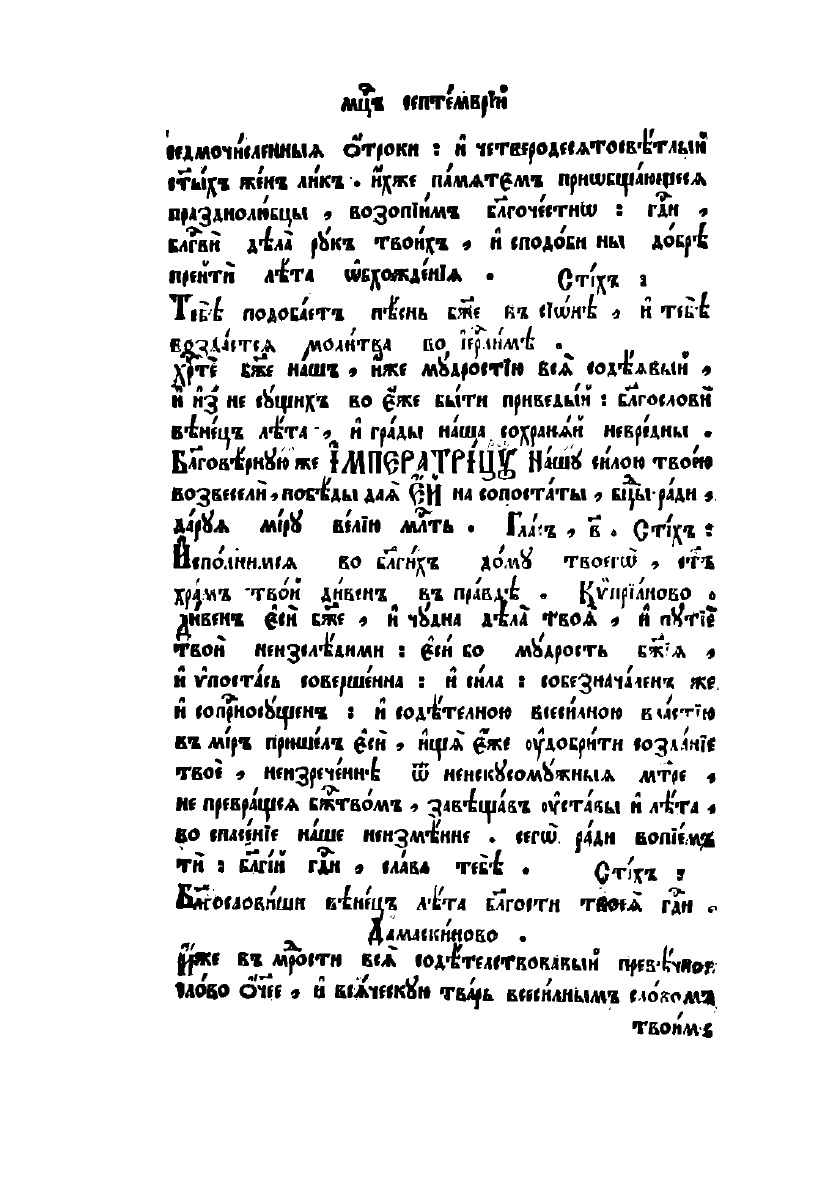 мц҃ъ септе́мврїй
седмочи́сленныѧ ѻ҆́троки : и҆ четверодесѧтосвѣ́тлый
ст҃ы́хъ же́нъ ли́къ . и҆́хже па́мѧтемъ прїѡбща́ющесѧ
празднолю́бцы , возопїи́мъ бл҃гоче́стнѡ : гдⷭ҇и ,
бл҃гвѝ дѣла̀ рꙋ́къ твои́хъ , и҆ сподо́би ны̀ до́брѣ
прейтѝ лѣ́та ѡ҆бхожде́нїѧ . Сті́хъ :
Тебѣ̀ подоба́етъ пѣ́снь бж҃е въ сїѡ́нѣ , и҆ тебѣ̀
возда́стсѧ моли́тва во і҆ерⷭ҇ли́мѣ .
хрⷭ҇тѐ бж҃е на́шъ , и҆́же мꙋ́дростїю всѧ̑ содѣ́ѧвый ,
и҆ и҆з̾ не сꙋ́щихъ во є҆́же бы́ти приведы́й : бл҃гословѝ
вѣне́цъ лѣ́та , и҆ гра́ды на́ша сохранѧ́й невре́дны .
Бл҃говѣ́рнꙋю же І҆МПЕРАТРІ́ЦꙊ на́шꙋ си́лою твое́ю
возвеселѝ , побѣ́ды даѧ̀ Е҆́Й на сопоста́ты , бцⷣы ра́ди ,
да́рꙋѧ мі́рꙋ ве́лїю млⷭ҇ть . Гла́съ , в҃ . Сті́хъ :
И҆спо́лнимсѧ во бл҃ги́хъ до́мꙋ твоегѡ̀ , ст҃ъ
хра́мъ тво́й ди́венъ въ пра́вдѣ . Кѷпрїа́ново .
Ди́венъ є҆сѝ бж҃е , и҆ чꙋ̑дна дѣла̀ твоѧ̑ , и҆ пꙋтїѐ
твоѝ неизслѣ́дими : є҆си́ бо мꙋ́дрость бж҃їѧ ,
и҆ ѵ҆поста́сь соверше́нна : и҆ си́ла : собезнача́ленъ же
и҆ соприсносꙋ́щенъ : и҆ содѣ́телною всеси́лною вла́стїю
въ мі́ръ прише́лъ є҆сѝ , и҆щѧ̀ є҆́же ᲂу҆добри́ти созда́нїе
твоѐ , неизрече́ннѣ ѿ неискꙋсомꙋ́жныѧ мт҃ре ,
не превра́щсѧ бж҃тво́мъ , завѣща́въ ᲂу҆ста́вы и҆ лѣ́та ,
во спасе́нїе на́ше неизмѣ́нне . сегѡ̀ ра́ди вопїе́мъ
тѝ : бл҃гі́й гдⷭ҇и , сла́ва тебѣ̀ . Сті́хъ :
Бл҃гослови́ши вѣне́цъ лѣ́та бл҃гости твоеѧ̀ гдⷭ҇и .
Дамаски́ново .
И҆́же въ мⷣрости всѧ̑ содѣ́телствовавый превѣ́чное
сло́во ѻ҆́ч҃ее , и҆ всѧ́ческꙋю тва́рь всеси́лнымъ сло́вомъ
твои́мъ